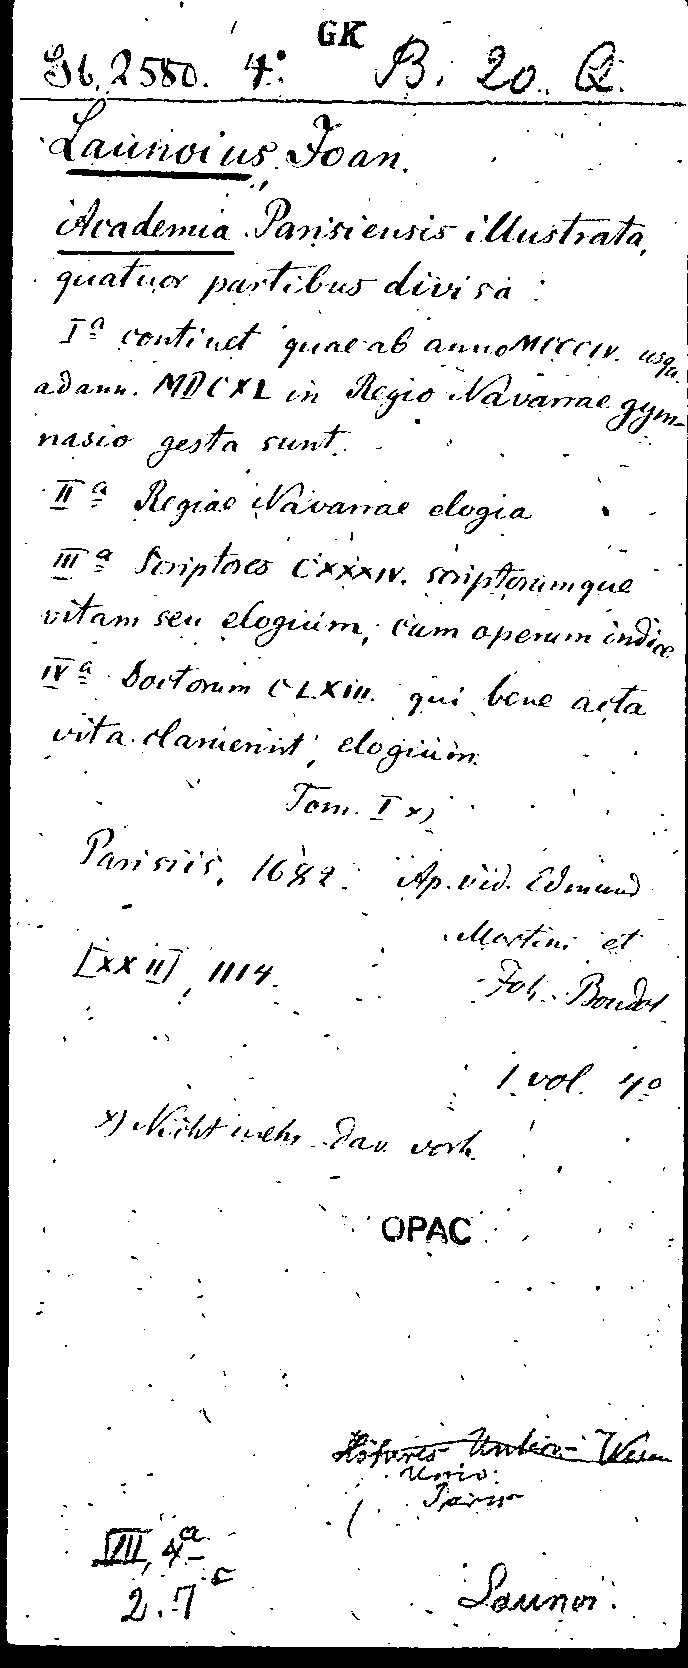 GK
Gb. 2580. 4° B. 20. Q.
Launoius, Joan.
Academia Parisiensis illustrata,
quatuor partibus divisa:
Iª continet quae ab anno MCCCIV. usqu.
ad ann. MDCXL in Regio Navarrae gym-
nasio gesta sunt.
IIª Regiae Navarrae elogia
IIIª Scriptores CXXXIV. scriptorumque
vitam seu elogium, cum operum indice
IVª Doctorum CLXIII. qui bene acta
vita claruerunt, elogium.
Tom. I x)
Parisiis, 1682. Ap. vid. Edmund
Martini et
[XXII], 1114.
Joh. Boudot
1 vol. 4°
x) Nicht mehr dav. vorh.
OPAC
Wesen
Univ.
Paris
VII, 4a
2.7 c
Launoi.